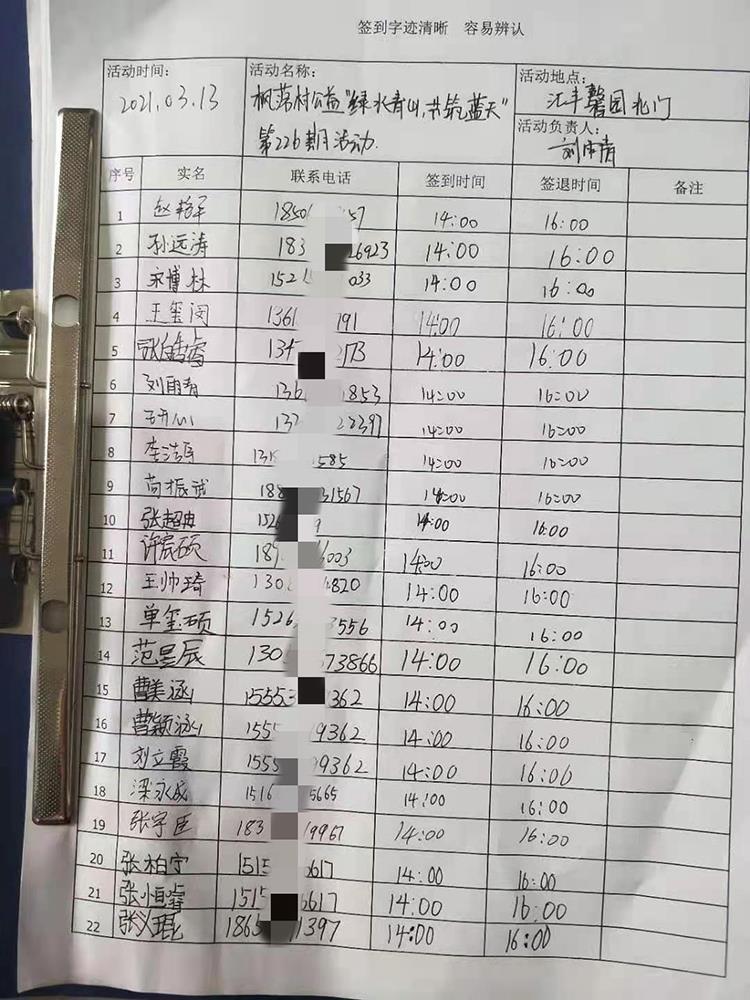 签到字迹清晰 容易辨认
活动时间: 活动名称: 活动地点:
2021.03.13 枫落村公益"绿水青山,共筑蓝天" 汇丰馨园北门
第226期活动. 活动负责人:
序号 实名 联系电话 签到时间 签退时间 备注
1 赵艳军 1850 57 14:00 16:00
2 孙远涛 183 26923 14:00 16:00
3 宋博林 1521 033 14:00 16:00
4 王玺闵 1361 191 14:00 16:00
5 134 173 14:00 16:00
6 刘雨青 136 1853 14:00 16:00
7 132 22397 14:00 16:00
8 李浩 131 585 14:00 16:00
9 尚振武 188 31567 14:00 16:00
10 张超冉 152 9 14:00 16:00
11 许宸硕 187 6003 14:00 16:00
12 王帅琦 130 6820 14:00 16:00
13 单玺硕 1526 3556 14:00 16:00
14 范昱辰 130 73866 14:00 16:00
15 曹美涵 15553 1362 14:00 16:00
16 曹颖涵 1555 19362 14:00 16:00
17 刘立霞 1555 99362 14:00 16:00
18 梁永成 1516 5665 14:00 16:00
19 张宇臣 183 19967 14:00 16:00
20 张柏宁 1515 6617 14:00 16:00
21 张恒睿 1515 6617 14:00 16:00
22 张义琨 1865 1397 14:00 16:00